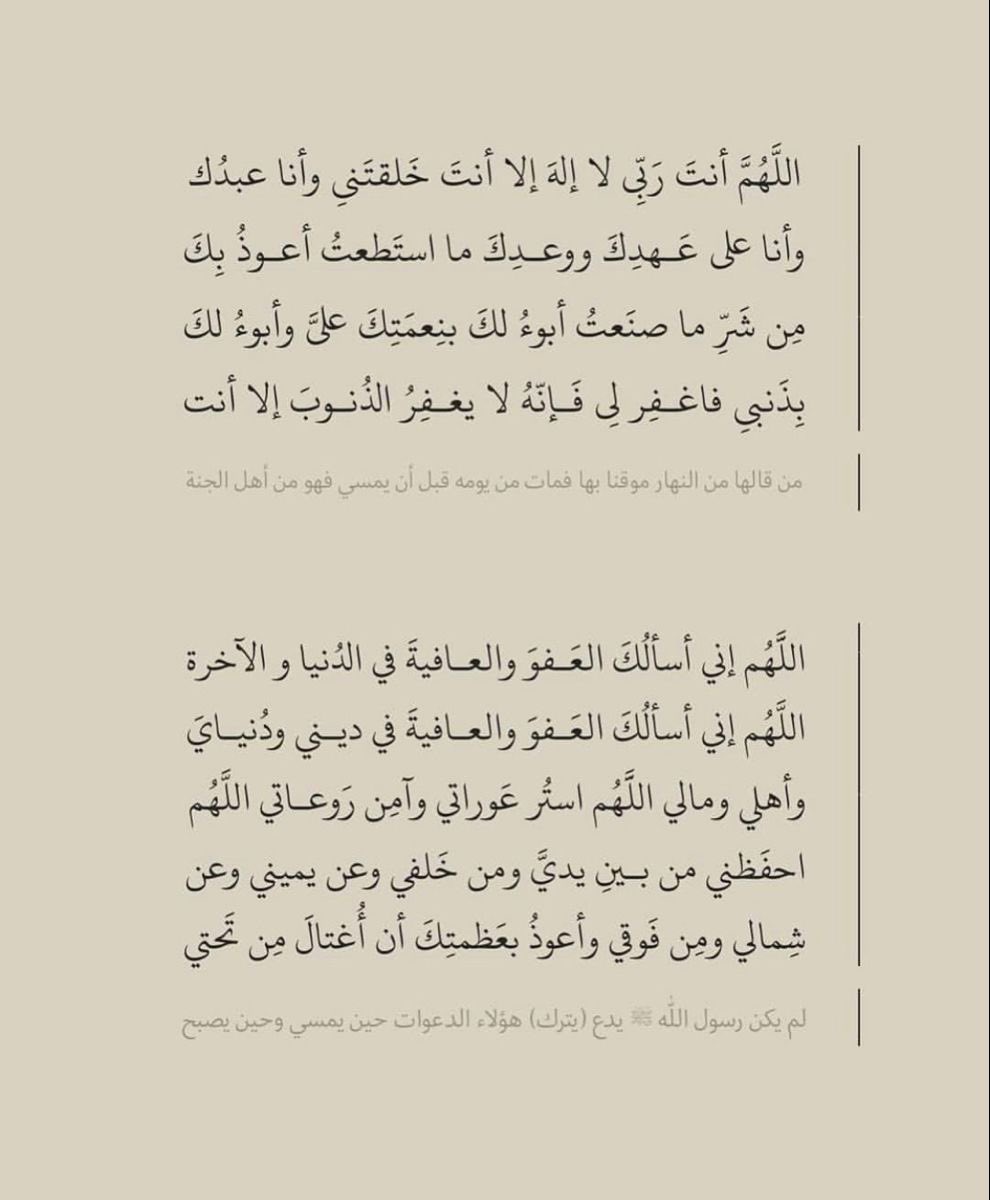 اللَّهُمَّ أنتَ رَبِّي لا إلهَ إلا أنتَ خَلقتَني وأنا عبدُك
وأنا على عَـهدِكَ ووعـدِكَ ما استَطعتُ أعـوذُ بِكَ
مِن شَرِّ ما صنَعتُ أبوءُ لكَ بنِعمَتِكَ عليَّ وأبوءُ لكَ
بِذَنبي فاغـفِر لِي فَـإنّهُ لا يغـفِرُ الذُنـوبَ إلا أنت
من قالها من النهار موقنا بها فمات من يومه قبل أن يمسي فهو من أهل الجنة
اللَّهُم إني أسألُكَ العَـفوَ والعـافيةَ في الدُنيا و الآخرة
اللَّهُم إني أسألُكَ العَـفوَ والعـافيةَ في ديـني ودُنيـايَ
وأهلي ومالي اللَّهُم استُر عَوراتي وآمِن رَوعـاتي اللَّهُم
احفَظني من بـينِ يديَّ ومن خَلفي وعن يميني وعن
شِمالي ومِن فَوقي وأعوذُ بعَظمتِكَ أن أُغتالَ مِن تَحتي
لم يكن رسول الله ﷺ يدع (يترك) هؤلاء الدعوات حين يمسي وحين يصبح